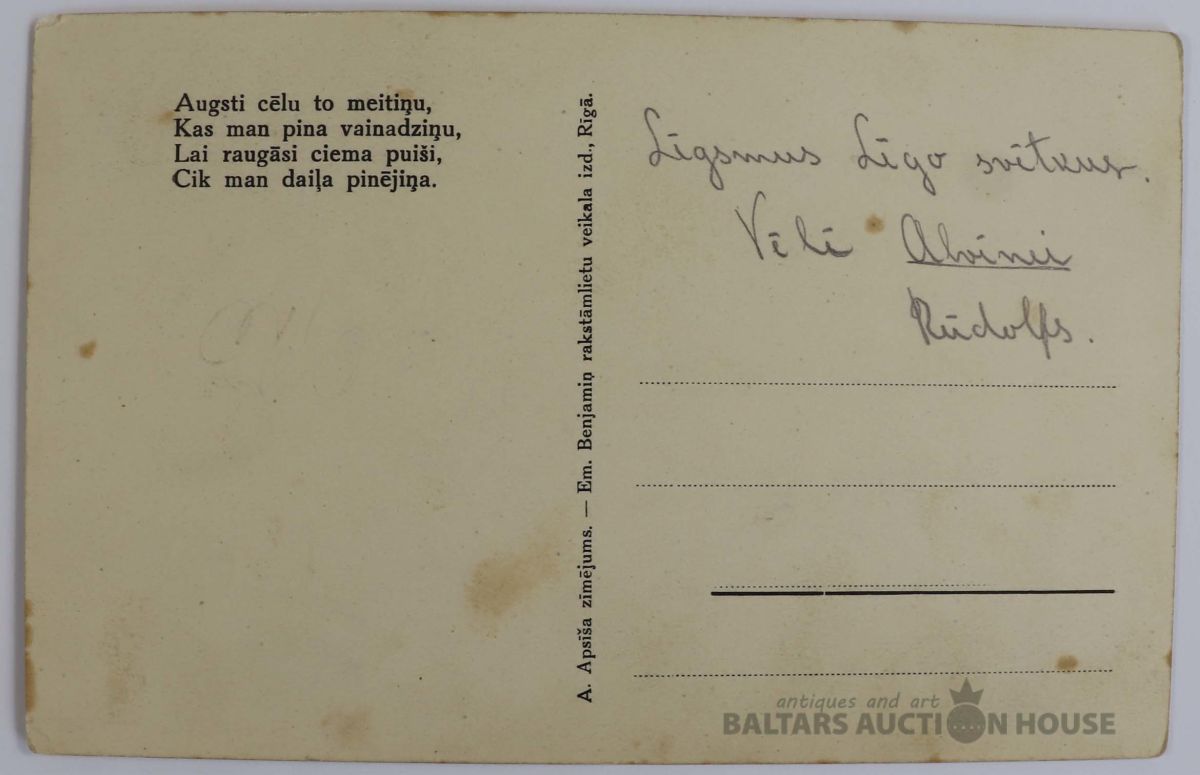 Augsti cēlu to meitiņu,
Kas man pina vainadziņu,
Lai raugāsi ciema puiši,
Cik man daiļa pinējiņa.
A. Apsīša zīmējums. — Em. Benjamiņ rakstāmlietu veikala izd., Rīgā.
Līgsmus Līgo svētkus.
Vēlē Alvīnei
Rūdolfs.
antiques and art
BALTARS AUCTION HOUSE